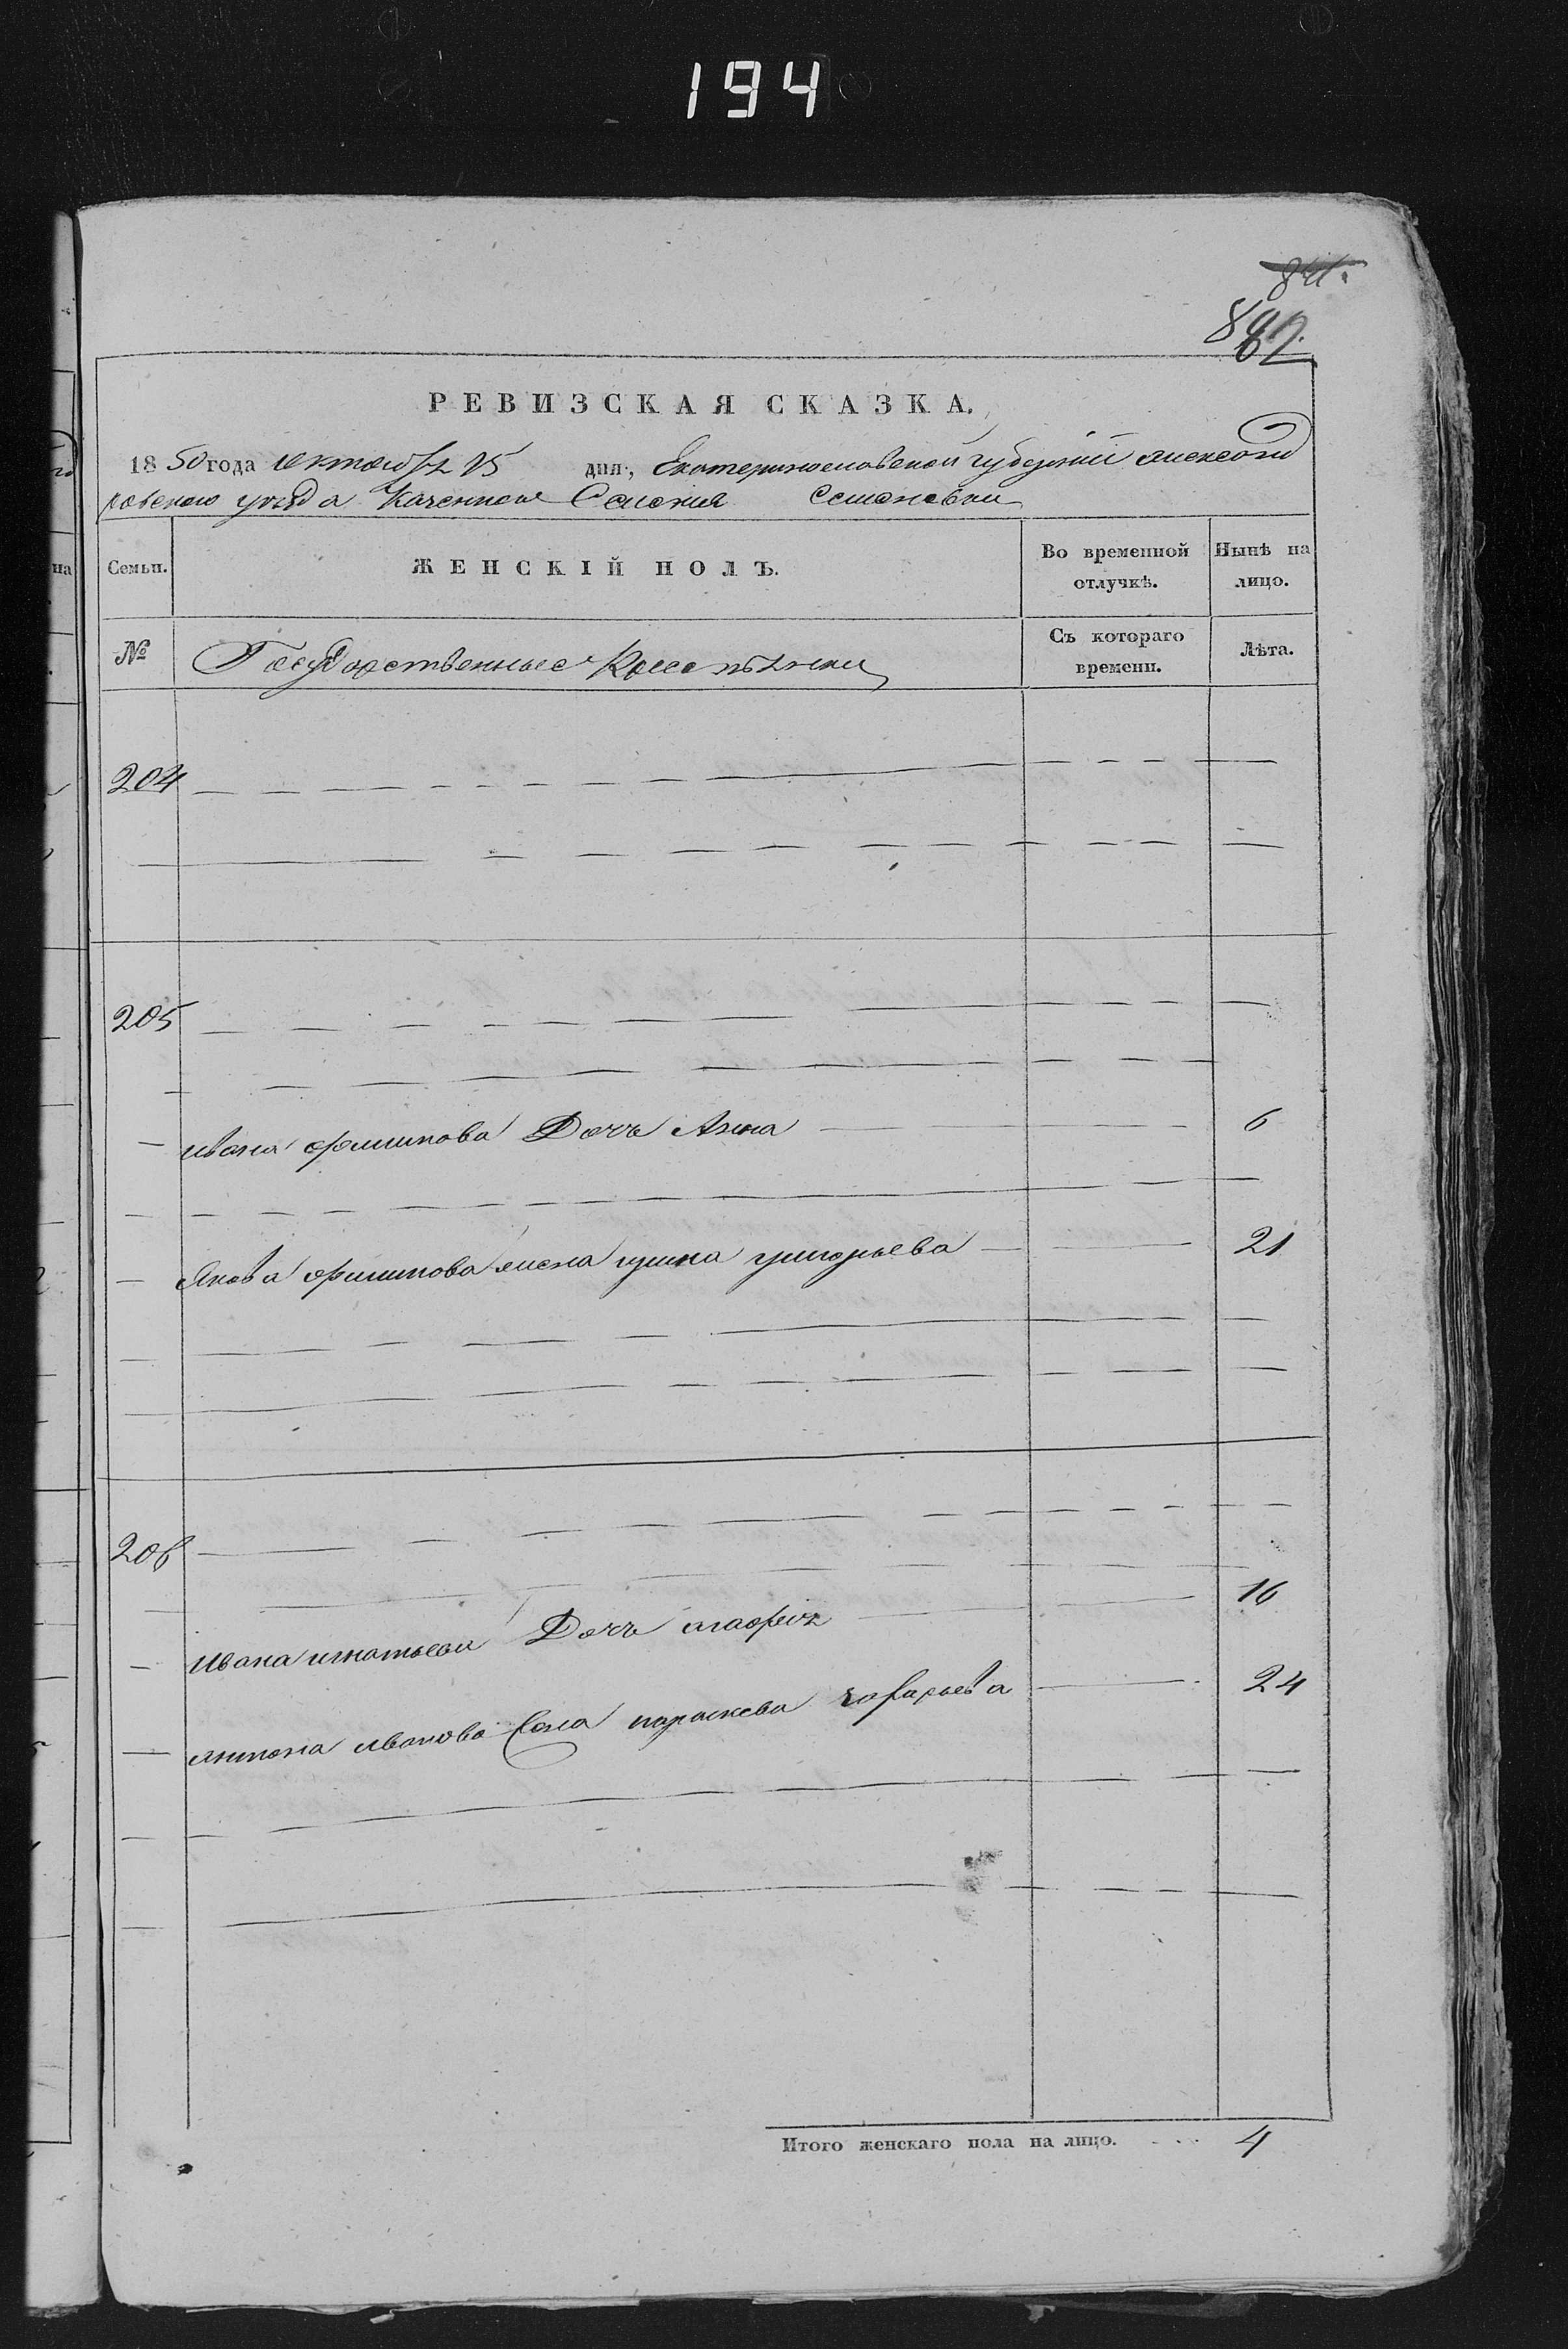 194
841.
882.
РЕВИЗСКАЯ СКАЗКА.
1850 года октября 15 дня, Екатеринославской губернии Александ
ровского уезда Казенного Селения Семеновки
Семьи. ЖЕНСКІЙ ПОЛЪ. Во временной отлучкѣ. Нынѣ на лицо.
№ Государственные Крестьяне Съ котораго времени. Лѣта.
204
205
Ивана филипова Дочь Анна 6
Якова филипова жена григорьева 21
206
Ивана игнатьева Дочь агафия 16
Антона иванова жена параскева захарьева 24
Итого женскаго пола на лицо. 4